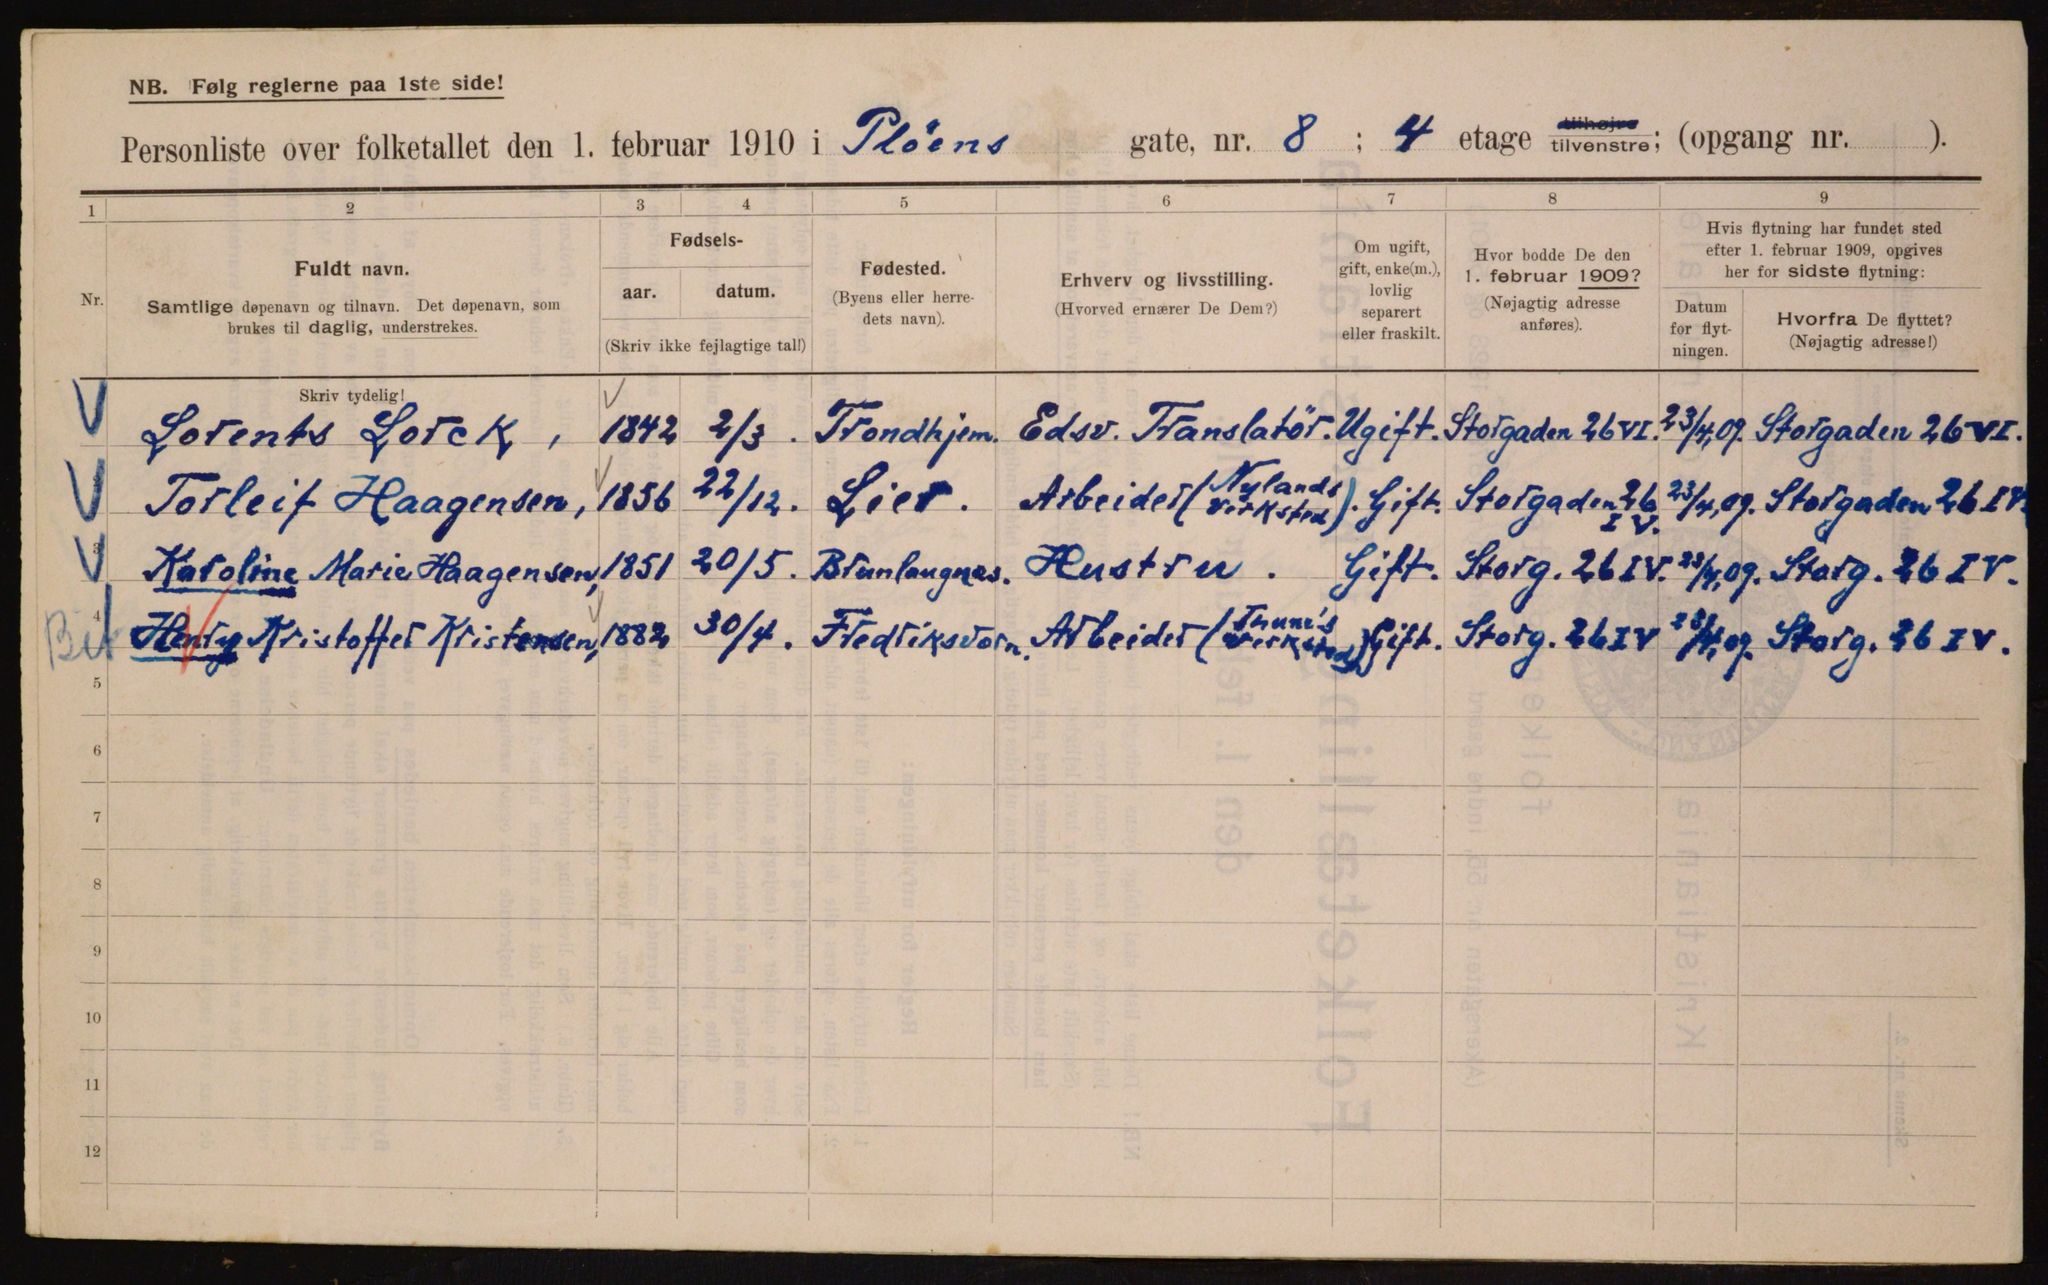 NB. Følg reglerne paa 1ste side!
Personliste over folketallet den 1. februar 1910 i Plöens gate, nr. 8 ; 4 etage tilhøjre tilvenstre; (opgang nr. ).
1 2 3 4 5 6 7 8 9
Nr.
Fuldt navn.
Samtlige døpenavn og tilnavn. Det døpenavn, som
brukes til daglig, understrekes.
Fødsels-
aar. datum.
(Skriv ikke fejlagtige tal!)
Fødested.
(Byens eller herre-
dets navn).
Erhverv og livsstilling.
(Hvorved ernærer De Dem?)
Om ugift,
gift, enke(m.),
lovlig
separert
eller fraskilt.
Hvor bodde De den
1. februar 1909?
(Nøjagtig adresse
anføres).
Hvis flytning har fundet sted
efter 1. februar 1909, opgives
her for sidste flytning:
Datum
for flyt-
ningen.
Hvorfra De flyttet?
(Nøjagtig adresse!)
Skriv tydelig!
Lorents Lorck, 1842 2/3. Trondhjem. Edsv. Translatör. Ugift. Storgaden 26 VI. 23/4,09. Storgaden 26 VI.
Torleif Haagensen, 1856 22/12. Lier. Arbeider (Nylands Verksted). Gift. Storgaden 26 IV. 23/4,09. Storgaden 26 IV.
3 Karoline Marie Haagensen, 1851 20/5. Brunlaugnæs. Hustru. Gift. Storg. 26 IV. 23/4,09. Storg. 26 IV.
4 Henry Kristoffer Kristensen, 1882 30/4. Fredriksvorn. Arbeider (Thune's Verksted) Gift. Storg. 26 IV 23/4,09. Storg. 26 IV.
5
6
7
8
9
10
11
12